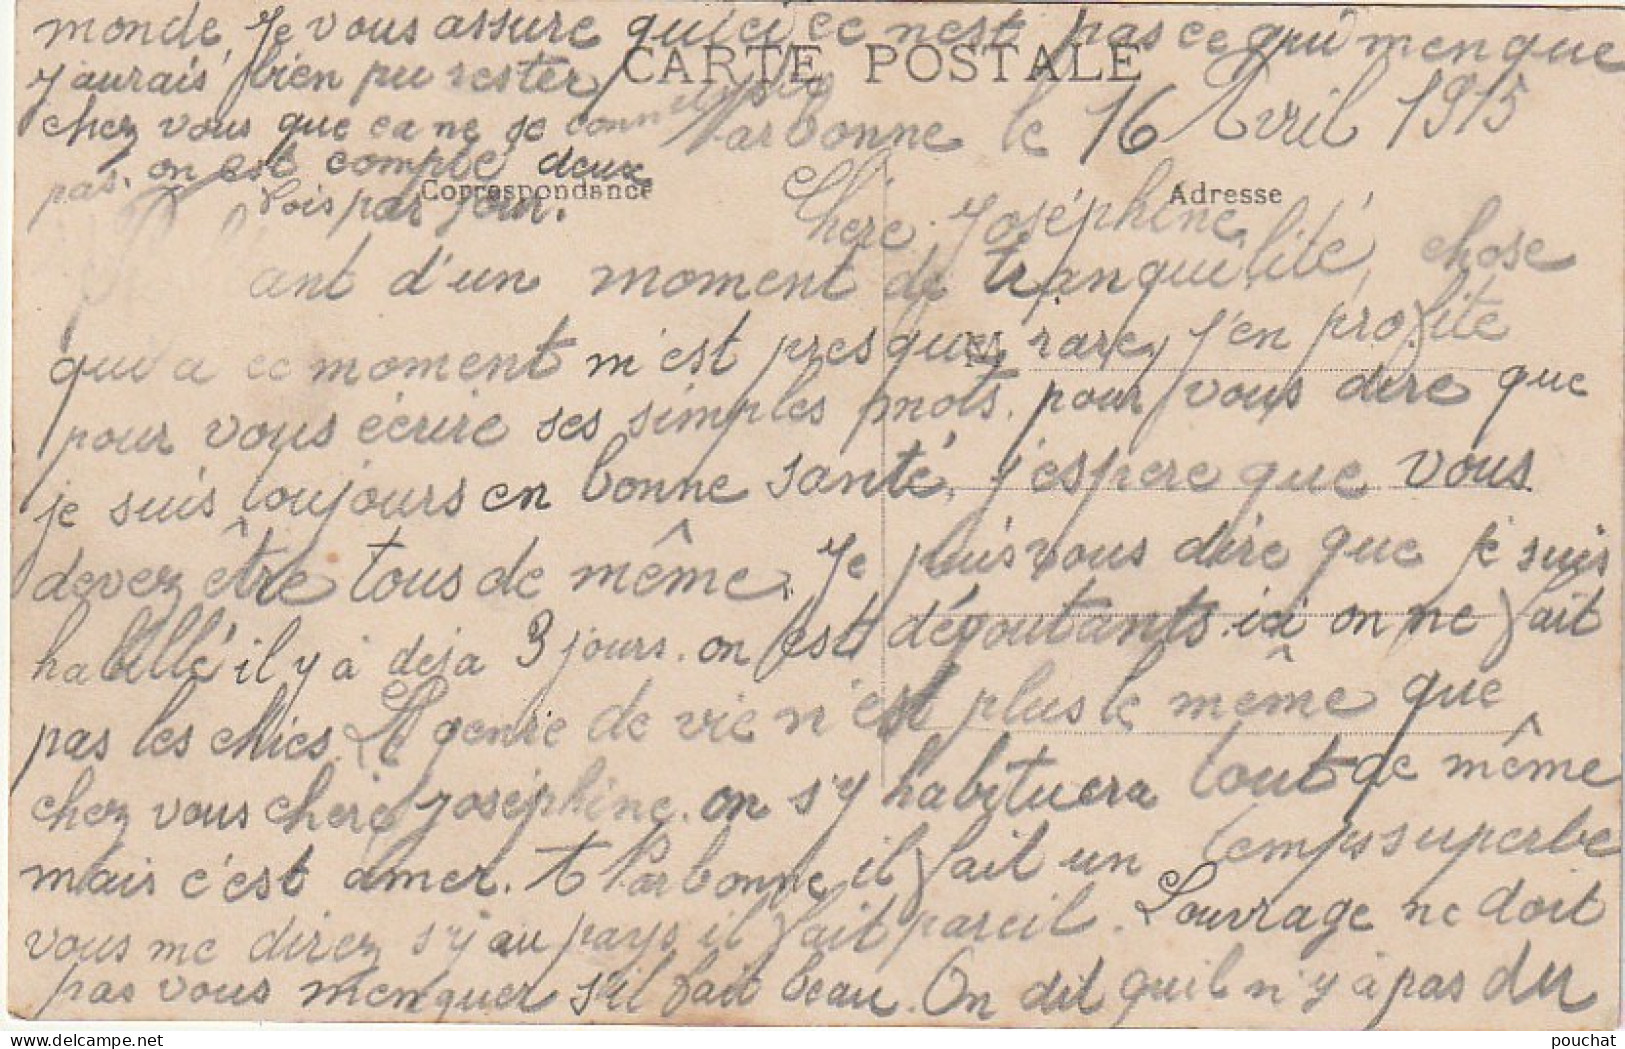 monde, Je vous assure qu'ici ce nest pas ce qui menque
CARTE POSTALE
j'aurais bien pu rester
chez vous que ca ne se
Narbonne le 16 Avril 1915
pas. on est compté deux
Correspondance
Adresse
fois par jour.
Chere Joséphine
ant d'un moment de tranquilité, chose
qui a ce moment m'est presques rare, j'en profite
M
pour vous écrire ses simples mots. pour vous dire que
je suis toujours en bonne santé, j'espere que vous
devez être tous de même. Je puis vous dire que je suis
habillé il y à deja 3 jours. on est dégoutants ici on ne fait
pas les chies. Le genre de vie n'est plus le même que
chez vous chere Joséphine. on s'y habituera tout de même
mais c'est amer. A Narbonne il fait un temps superbe
vous me direz s'y au pays il fait pareil. Louvrage ne doit
pas vous menquer s'il fait beau. On dit quil n'y à pas du
pouchat